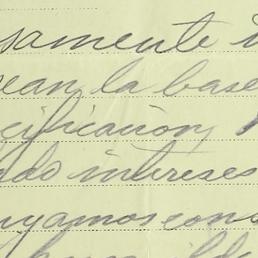 samente
sean la base
cificación,
do intereses
uyamos cons